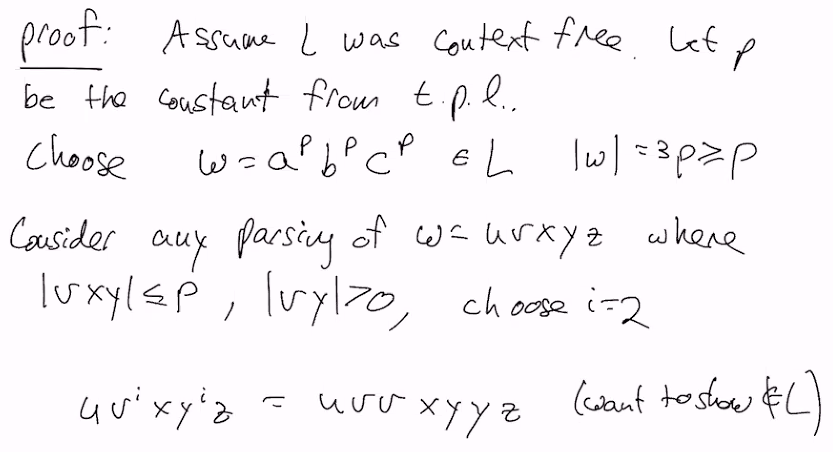 proof: Assume L was context free. Let p
be the constant from t.p.l..
Choose w = aᵖbᵖcᵖ ∈ L |w| = 3p ≥ p
Consider any parsing of w = uvxyz where
|vxy| ≤ p, |vy| > 0, choose i=2
uvⁱxyⁱz = uvvxyyz (want to show ∉ L)